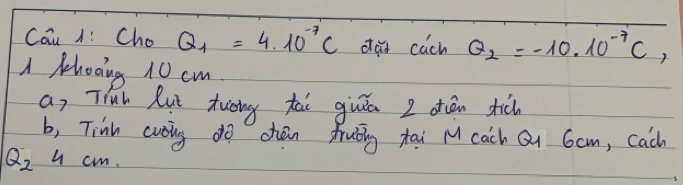 Câu 1: Cho Q₁ = 4.10⁻⁷C đặt cách Q₂ = -10.10⁻⁷C,
1 khoảng 10 cm.
a, Tính lực tương tác giữa 2 điện tích
b, Tính cường độ điện trường tại M cách Q1 6cm, cách
Q₂ 4 cm.